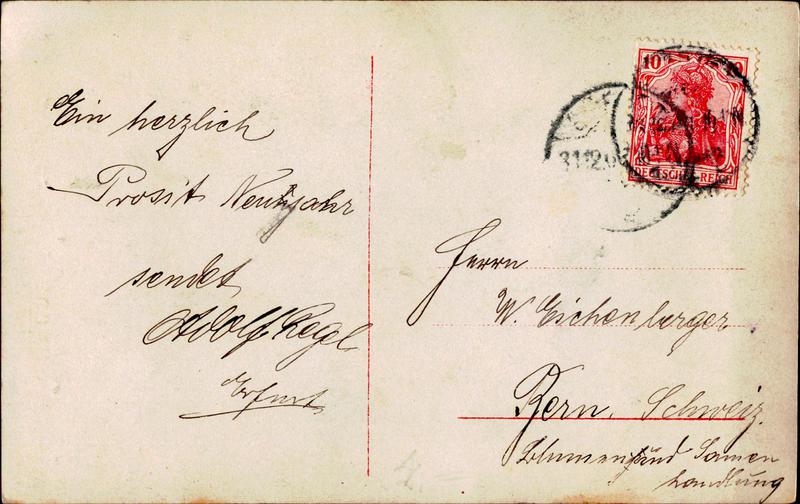 Ein herzlich
Prosit Neuhjahr
sendet
Adolf Kegel
Erfurt
10 10
DEUTSCHES REICH
31.12.0
Herrn
W. Eichenberger
Bern, Schweiz.
Blumen und Samen
handlung